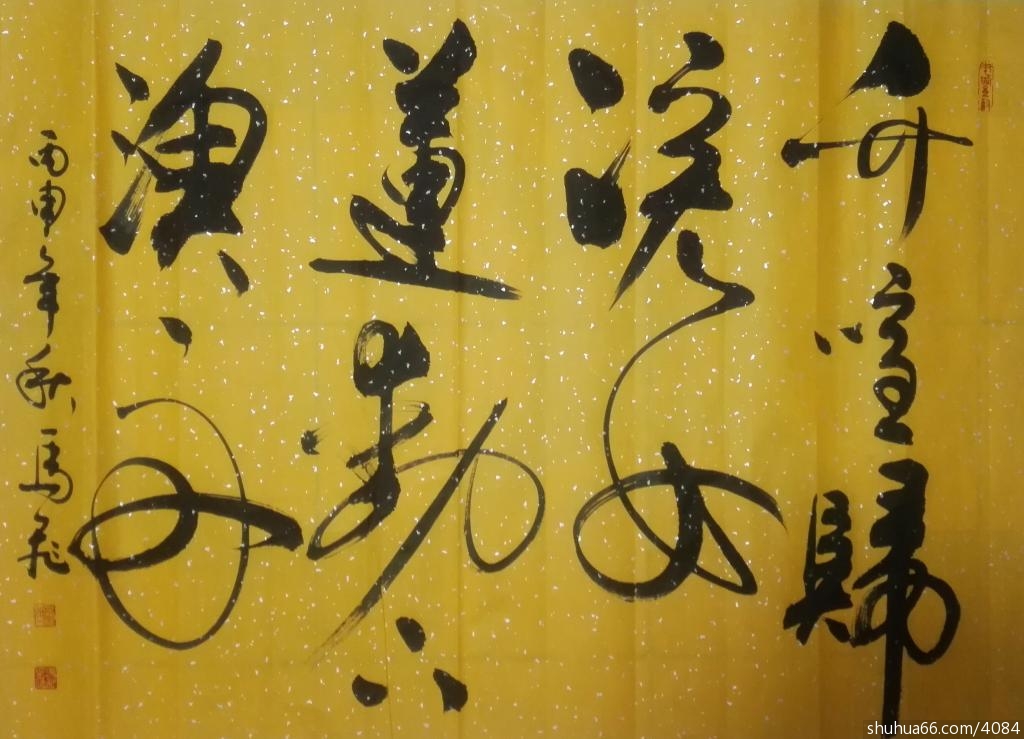 竹喧歸
浣女
蓮動下
漁舟
丙申年秋馬飛
shuhua66.com/4084